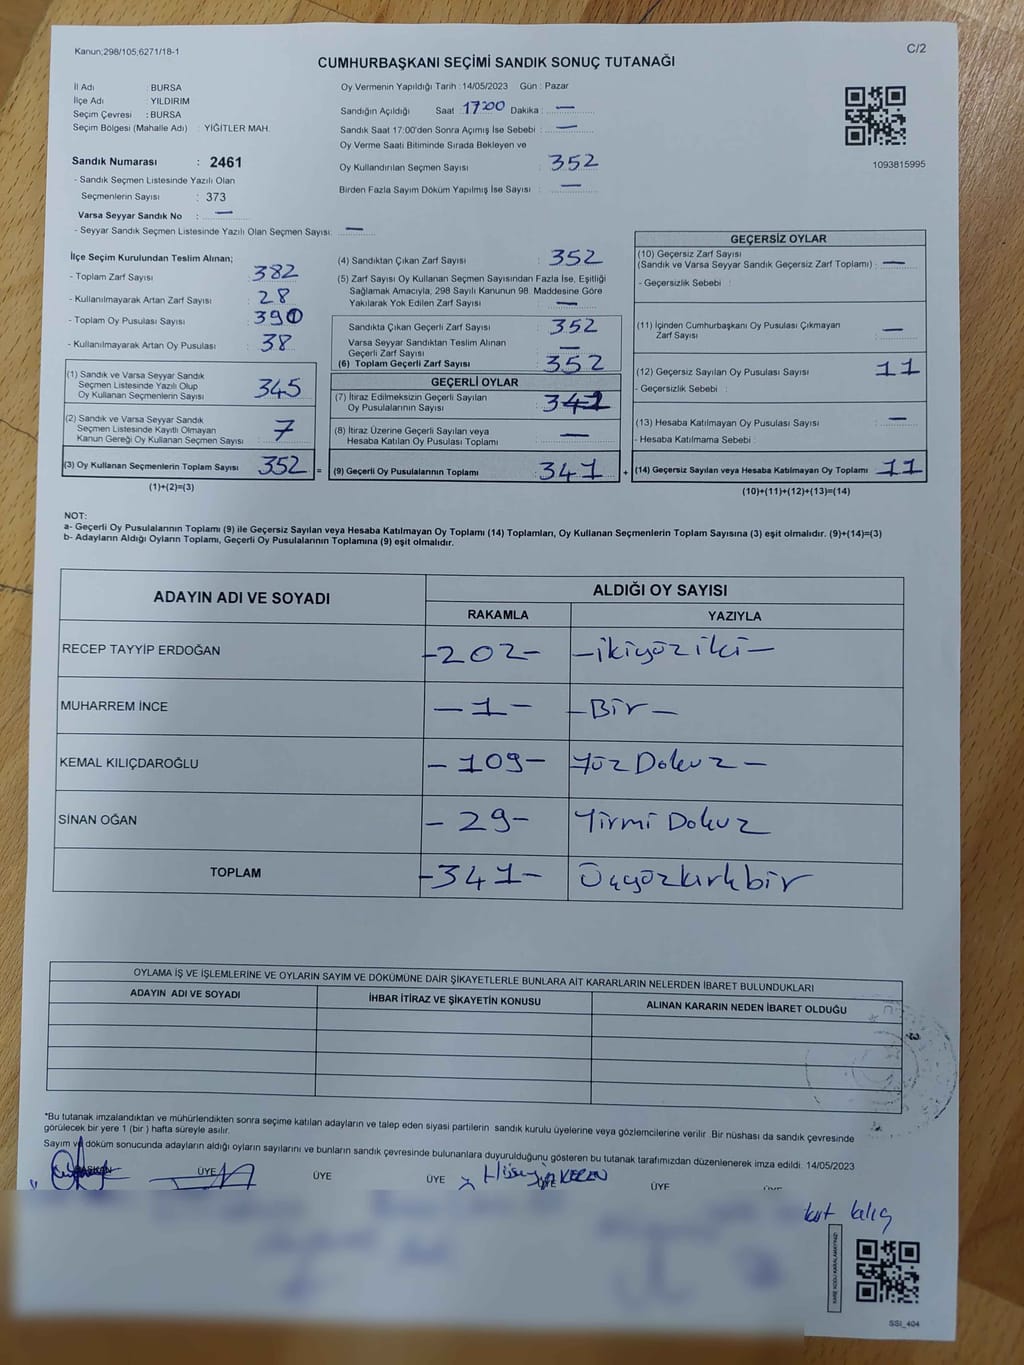 Kanun;298/105,6271/18-1
C/2
CUMHURBAŞKANI SEÇİMİ SANDIK SONUÇ TUTANAĞI
İl Adı : BURSA
İlçe Adı : YILDIRIM
Seçim Çevresi : BURSA
Seçim Bölgesi (Mahalle Adı) : YİĞİTLER MAH.
Sandık Numarası : 2461
- Sandık Seçmen Listesinde Yazılı Olan
Seçmenlerin Sayısı : 373
Varsa Seyyar Sandık No : —
- Seyyar Sandık Seçmen Listesinde Yazılı Olan Seçmen Sayısı: —
Oy Vermenin Yapıldığı Tarih : 14/05/2023 Gün : Pazar
Sandığın Açıldığı Saat 17:00 Dakika : —
Sandık Saat 17:00'den Sonra Açımış İse Sebebi : —
Oy Verme Saati Bitiminde Sırada Bekleyen ve
Oy Kullandırılan Seçmen Sayısı : 352
Birden Fazla Sayım Döküm Yapılmış İse Sayısı : —
1093815995
İlçe Seçim Kurulundan Teslim Alınan;
- Toplam Zarf Sayısı : 382
- Kullanılmayarak Artan Zarf Sayısı : 28
- Toplam Oy Pusulası Sayısı : 390
- Kullanılmayarak Artan Oy Pusulası : 38
(1) Sandık ve Varsa Seyyar Sandık
Seçmen Listesinde Yazılı Olup
Oy Kullanan Seçmenlerin Sayısı : 345
(2) Sandık ve Varsa Seyyar Sandık
Seçmen Listesinde Kayıtlı Olmayan
Kanun Gereği Oy Kullanan Seçmen Sayısı : 7
(3) Oy Kullanan Seçmenlerin Toplam Sayısı : 352 =
(1)+(2)=(3)
(4) Sandıktan Çıkan Zarf Sayısı : 352
(5) Zarf Sayısı Oy Kullanan Seçmen Sayısından Fazla İse, Eşitliği
Sağlamak Amacıyla, 298 Sayılı Kanunun 98. Maddesine Göre
Yakılarak Yok Edilen Zarf Sayısı : —
Sandıkta Çıkan Geçerli Zarf Sayısı : 352
Varsa Seyyar Sandıktan Teslim Alınan
Geçerli Zarf Sayısı : —
(6) Toplam Geçerli Zarf Sayısı : 352
GEÇERLİ OYLAR
(7) İtiraz Edilmeksizin Geçerli Sayılan
Oy Pusulalarının Sayısı : 341
(8) İtiraz Üzerine Geçerli Sayılan veya
Hesaba Katılan Oy Pusulası Toplamı : —
(9) Geçerli Oy Pusulalarının Toplamı : 341 +
GEÇERSİZ OYLAR
(10) Geçersiz Zarf Sayısı
(Sandık ve Varsa Seyyar Sandık Geçersiz Zarf Toplamı) : —
- Geçersizlik Sebebi :
(11) İçinden Cumhurbaşkanı Oy Pusulası Çıkmayan
Zarf Sayısı : —
(12) Geçersiz Sayılan Oy Pusulası Sayısı : 11
- Geçersizlik Sebebi :
(13) Hesaba Katılmayan Oy Pusulası Sayısı : —
- Hesaba Katılmama Sebebi :
(14) Geçersiz Sayılan veya Hesaba Katılmayan Oy Toplamı : 11
(10)+(11)+(12)+(13)=(14)
NOT:
a- Geçerli Oy Pusulalarının Toplamı (9) ile Geçersiz Sayılan veya Hesaba Katılmayan Oy Toplamı (14) Toplamları, Oy Kullanan Seçmenlerin Toplam Sayısına (3) eşit olmalıdır. (9)+(14)=(3)
b- Adayların Aldığı Oyların Toplamı, Geçerli Oy Pusulalarının Toplamına (9) eşit olmalıdır.
ADAYIN ADI VE SOYADI ALDIĞI OY SAYISI
RAKAMLA YAZIYLA
RECEP TAYYİP ERDOĞAN -202- -ikiyüziki-
MUHARREM İNCE -1- -Bir-
KEMAL KILIÇDAROĞLU -109- Yüz Dokuz-
SİNAN OĞAN -29- Yirmi Dokuz
TOPLAM -341- Üçyüzkırkbir
OYLAMA İŞ VE İŞLEMLERİNE VE OYLARIN SAYIM VE DÖKÜMÜNE DAİR ŞİKAYETLERLE BUNLARA AİT KARARLARIN NELERDEN İBARET BULUNDUKLARI
ADAYIN ADI VE SOYADI İHBAR İTİRAZ VE ŞİKAYETİN KONUSU ALINAN KARARIN NEDEN İBARET OLDUĞU
*Bu tutanak imzalandıktan ve mühürlendikten sonra seçime katılan adayların ve talep eden siyasi partilerin sandık kurulu üyelerine veya gözlemcilerine verilir .Bir nüshası da sandık çevresinde
görülecek bir yere 1 (bir ) hafta süreyle asılır.
Sayım ve döküm sonucunda adayların aldığı oyların sayılarını ve bunların sandık çevresinde bulunanlara duyurulduğunu gösteren bu tutanak tarafımızdan düzenlenerek imza edildi. 14/05/2023
BAŞKAN ÜYE ÜYE ÜYE ÜYE ÜYE
SSI_404